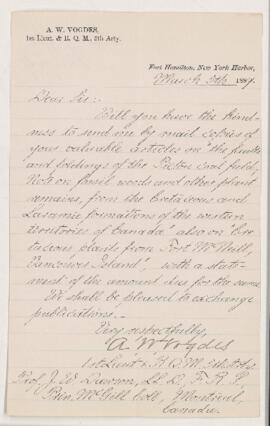 A. W. VOGDES,
1st Lieut. & R. Q. M., 5th Arty.
Fort Hamilton, New York Harbor,
March 1887.
Dear Sir:
Will you have the kind-
ness to send me by mail copies of
your valuable articles on "the
and of the Pictou Coal field,
Note on fossil woods and other plant
remains, from the Cretaceous and
Laramie formations of the western
territories of Canada" also on "Cre-
taceous plants from Port McNeill,
Vancouver Island", with a state-
ment of the amount due for the same
We shall be pleased to exchange
publications.
Very respectfully,
A W Vogdes
1st Lieut & R. Q. M. 5th Arty
Prof. J. W. Dawson, LL. D. F. R. S.
Prin. McGill Coll, Montreal,
Canada.